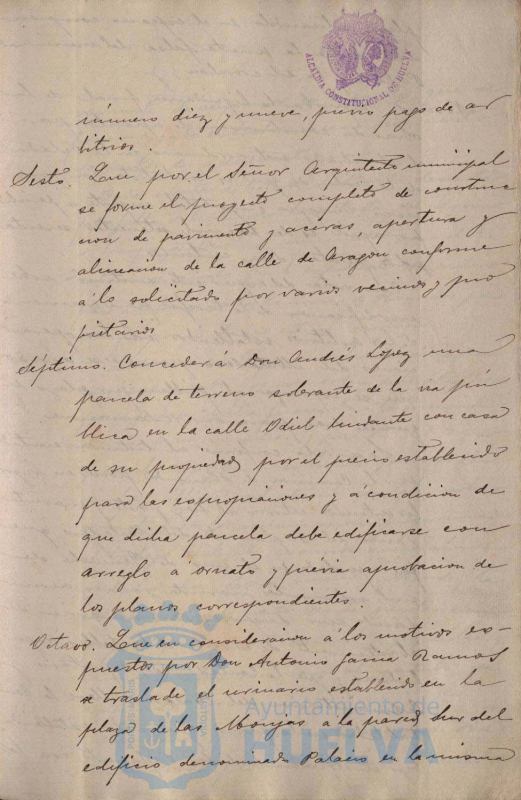 ALCALDIA CONSTITUCIONAL DE HUELVA
número diez y nueve, previo pago de ar
bitrios.
Sesto. Que por el Señor Arquitecto municipal
se forme el proyecto completo de construc
cion de pavimento y aceras, apertura y
alineacion de la calle de Aragon conforme
á lo solicitado por varios vecinos y pro
pietarios
Séptimo. Conceder á Don Andrés Lopez una
parcela de terreno sobrante de la via pú
blica en la calle Odiel lindante con casa
de su propiedad, por el precio establecido
para las espropiaciones y á condicion de
que dicha parcela debe edificarse con
arreglo á ornato y prévia aprobacion de
los planos correspondientes.
Octavo. Que en consideracion á los motivos es
puestos por Don Antonio Garcia Ramos
se traslade el urinario establecido en la
plaza de las Monjas á la pared Sur del
edificio denominado Palacio en la misma
Ayuntamiento de
HUELVA